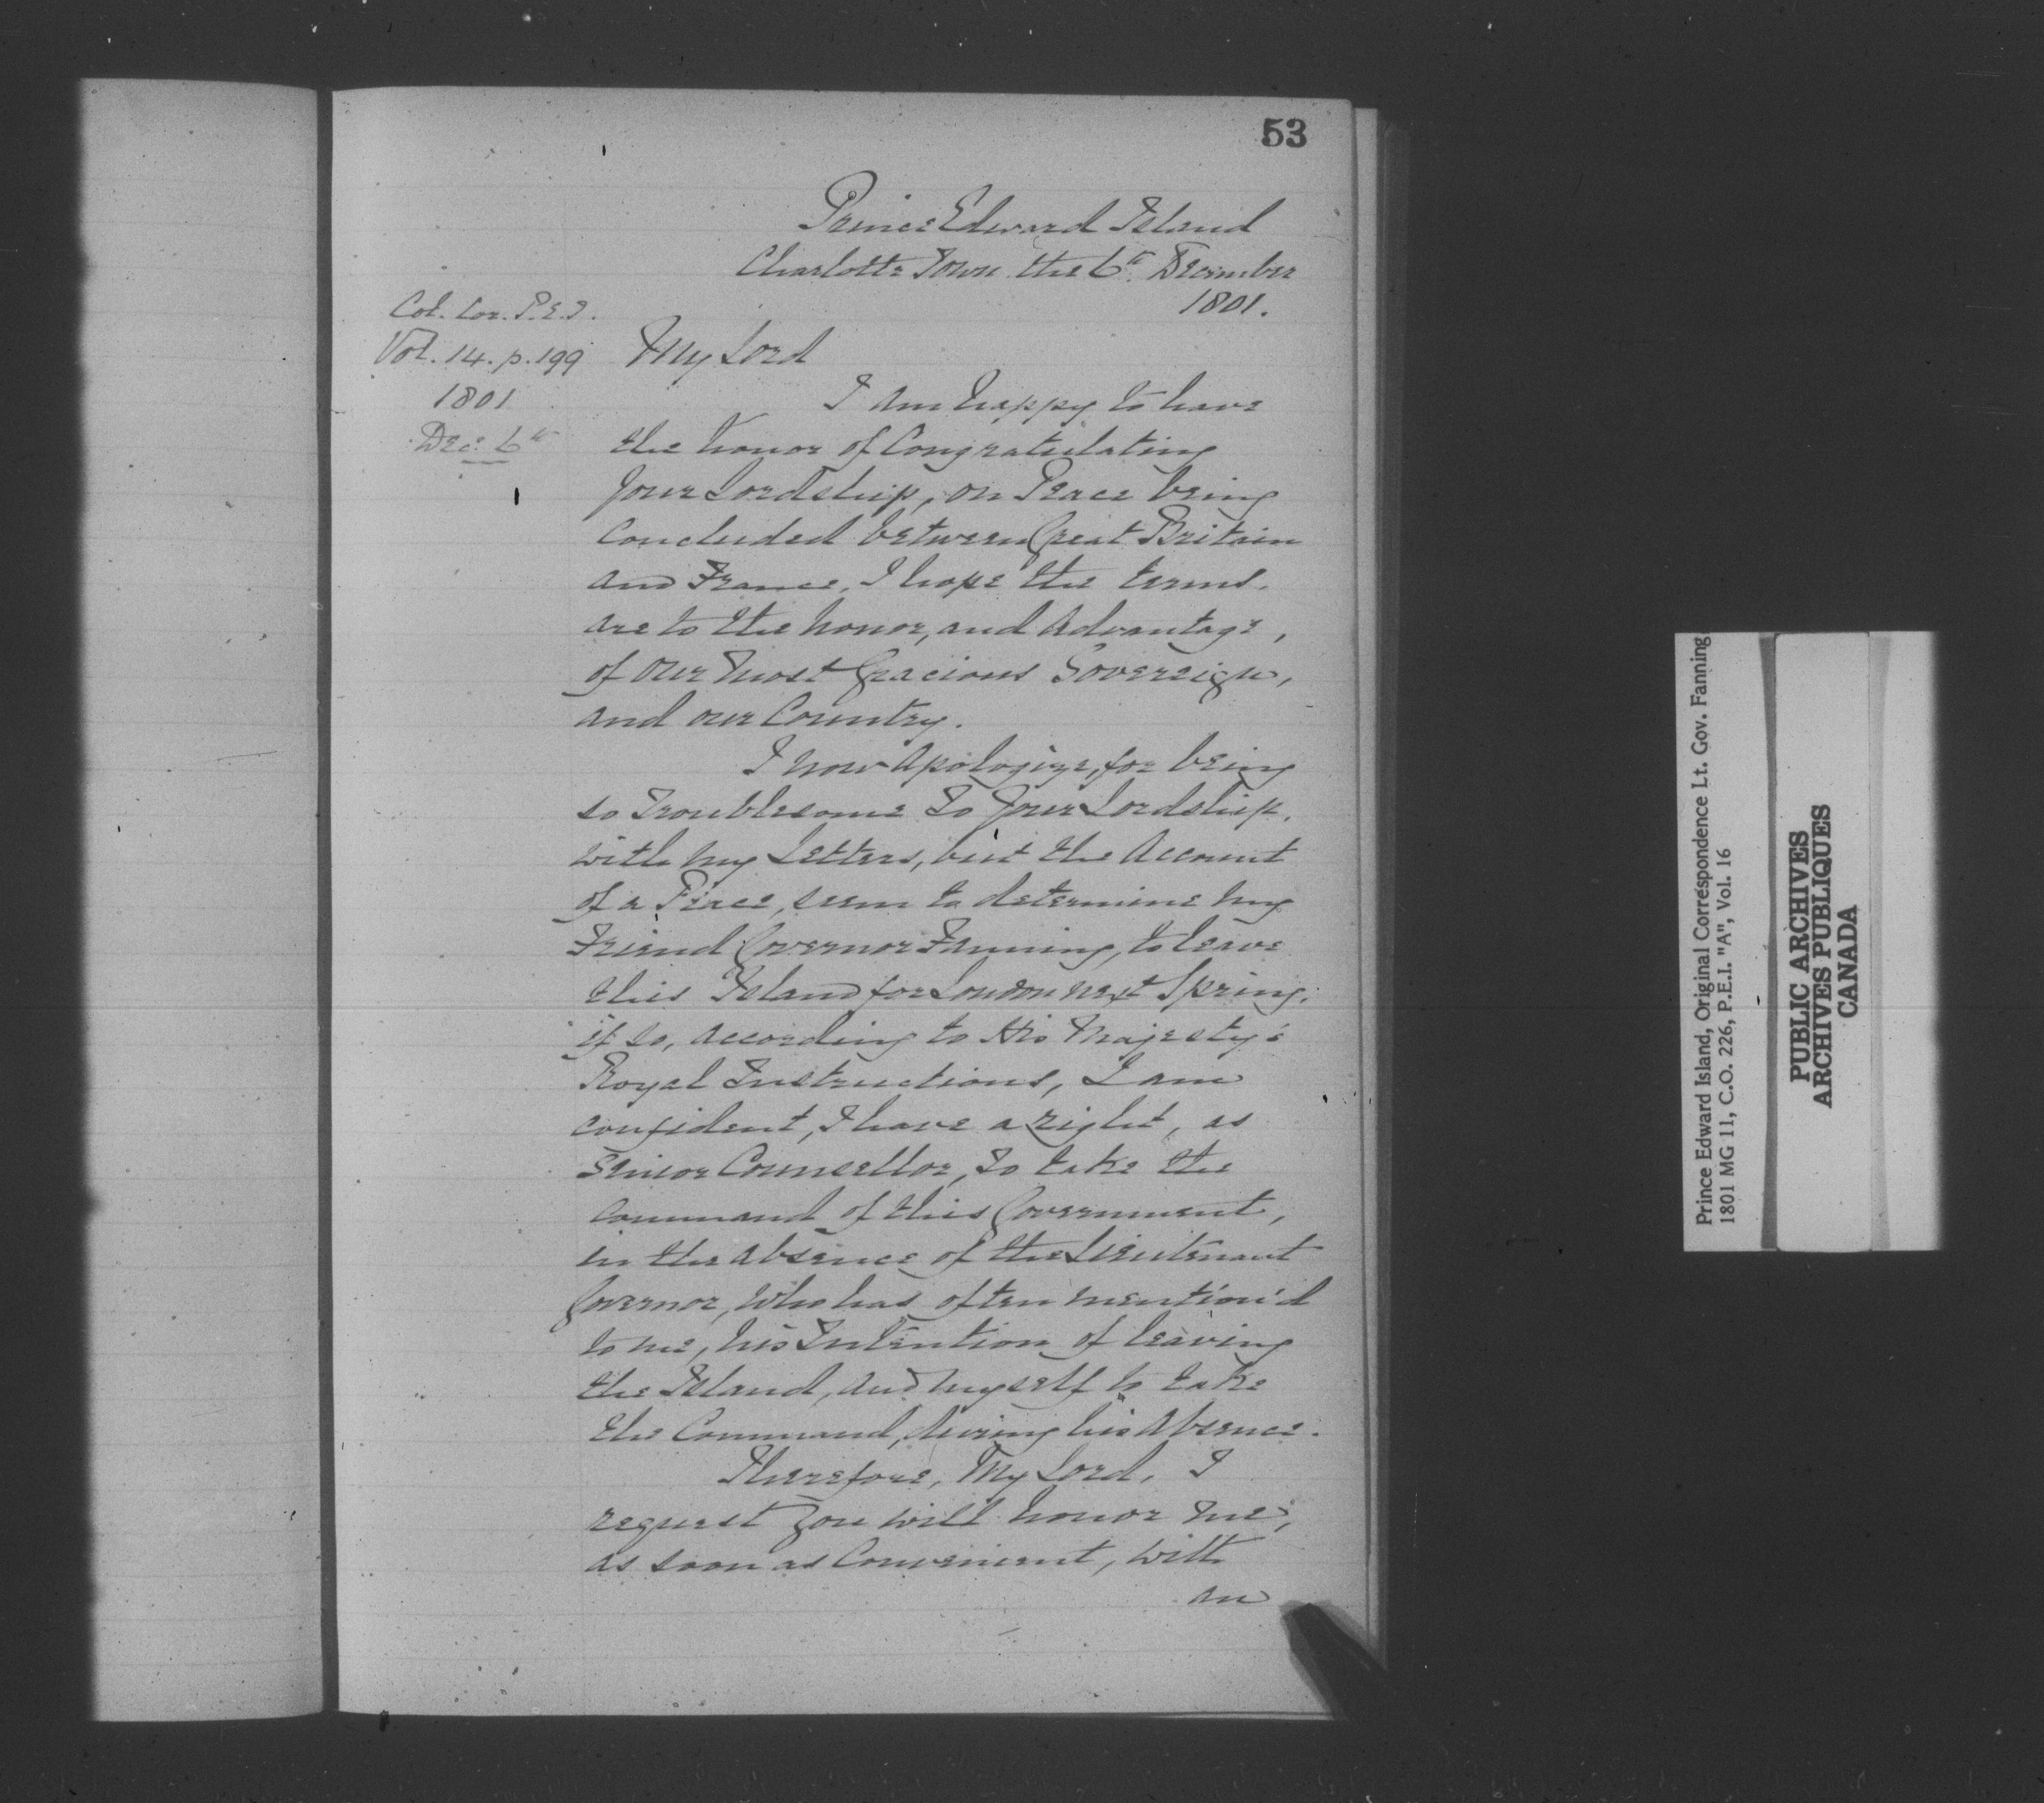 53
Prince Edward Island
Charlotte Town the 6th December
1801.
Col. Cor. P.E.I.
Vol. 14. p. 199
1801
Dec. 6th
My Lord
I am happy to have
the honor of Congratulating
Your Lordship, on Peace being
Concluded between Great Britain
and France, I hope the terms.
are to the honor, and Advantage,
of our Most Gracious Sovereign,
and our Country.
I now Apologize, for being
so Troublesome To Your Lordship,
with my Letters, but the Account
of a Peace, seem to determine my
Friend Governor Fanning, to leave
this Island for London next Spring;
if so, according to His Majesty's
Royal Instructions, I am
confident, I have a right, as
Senior Counsellor, To take the
Command of this Government,
in the Absence of the Lieutenant
Governor, Who has often mention'd
to me, his Intention of leaving
the Island, and myself to take
the Command, during his Absence.
Therefore, My Lord, I
request you will honor me,
as soon as Convenient, with
an
Prince Edward Island, Original Correspondence Lt. Gov. Fanning
1801 MG 11, C.O. 226, P.E.I. "A", Vol. 16
PUBLIC ARCHIVES
ARCHIVES PUBLIQUES
CANADA